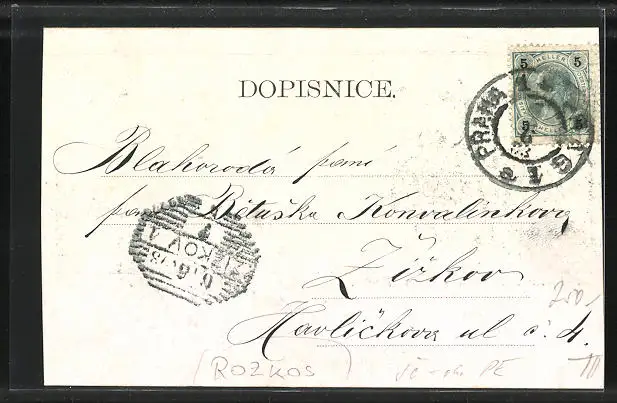 DOPISNICE.
5 HELLER 5
5
PRAHA 1
Blahorodá paní
paní Bituška Konvalinkova
Žižkov
ŽIŽKOV 1
Havlíčkova ul č. 4.
250,-
ROZKOS
PE